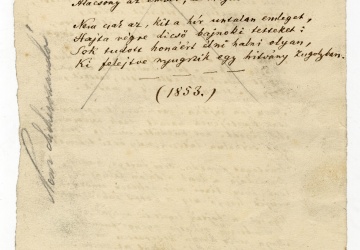 Alacsony az
Nem csak az, kit a hír untalan emleget,
Hajta végre dicső bajnoki tetteket:
Sok tudott honáért élni halni olyan,
Ki felejtve nyugszik egy hitvány zugolyban.
(1853.)